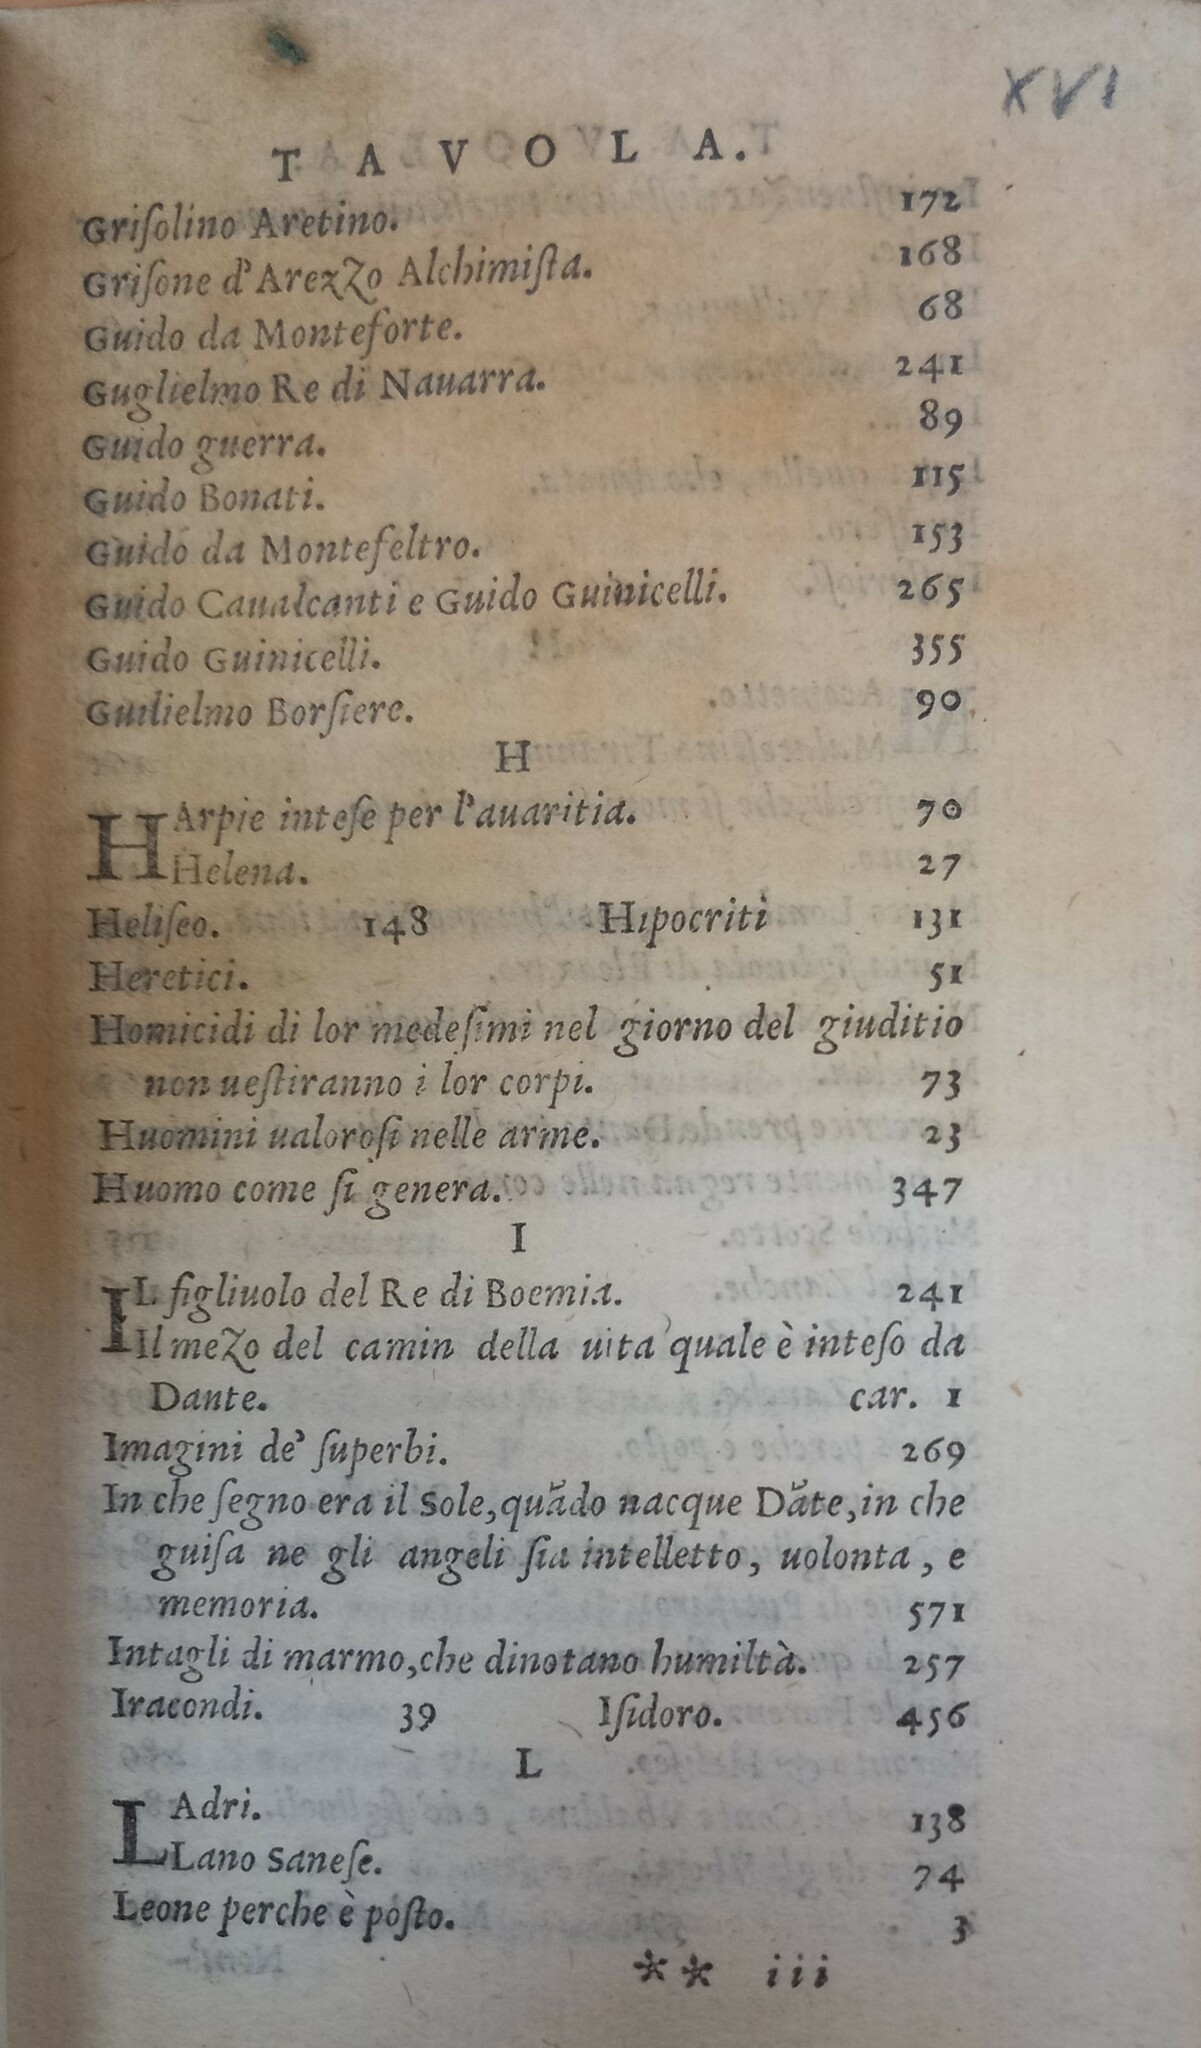 XVI
TAVOLA.
Griſolino Aretino. 172
Griſone d'Arezzo Alchimiſta. 168
Guido da Monteforte. 68
Guglielmo Re di Nauarra. 241
Guido guerra. 89
Guido Bonati. 115
Guido da Montefeltro. 153
Guido Caualcanti e Guido Guinicelli. 265
Guido Guinicelli. 355
Guilielmo Borſiere. 90
H
HArpie inteſe per l'auaritia. 70
Helena. 27
Heliſeo. 148 Hipocriti 131
Heretici. 51
Homicidi di lor medeſimi nel giorno del giuditio
non ueſtiranno i lor corpi. 73
Huomini ualoroſi nelle arme. 23
Huomo come ſi genera. 347
I
IL figliuolo del Re di Boemia. 241
Il mezo del camin della uita quale è inteſo da
Dante. car. 1
Imagini de' ſuperbi. 269
In che ſegno era il Sole, quãdo nacque Dãte, in che
guiſa ne gli angeli ſia intelletto, uolonta, e
memoria. 571
Intagli di marmo, che dinotano humiltà. 257
Iracondi. 39 Iſidoro. 456
L
LAdri. 138
Lano Saneſe. 74
Leone perche è poſto. 3
** iii